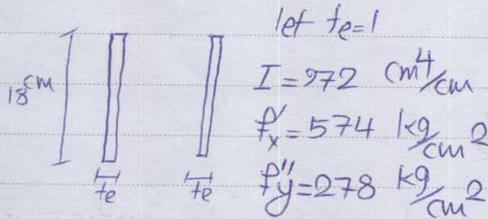 let te=1
18 cm
I=972 cm⁴/cm
f'x=574 kg/cm²
f"y=278 kg/cm²
te te